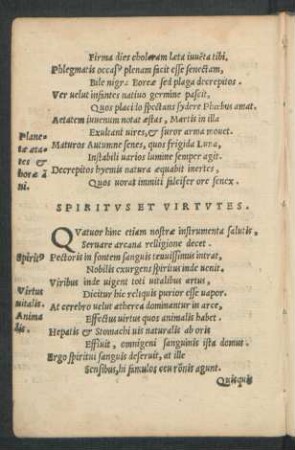 Firma dies choleram lata iuuẽta tibi.
Phlegmatis occasꝰ plenam facit esse senectam,
Bile nigra Boreæ sed plaga decrepitos.
Ver uelut infantes natiuo germine pascit,
Quos placido spectans sydere Phœbus amat.
Aetatem iuuenum notat æstas, Martis in illa
Exultant uires, & furor arma mouet.
Plane-
tæ æta-
tes &
horæ ã
ni.
Maturos Autumne senes, quos frigida Luna,
Instabili uarios lumine semper agit.
Decrepitos hyemis natura æquabit inertes,
Quos uorat immiti falcifer ore senex.
SPIRITVS ET VIRTVTES.
QVatuor hinc etiam nostræ instrumenta salutis,
Seruare arcana relligione decet.
Spiritꝰ
Pectoris in fontem sanguis tenuissimus intrat,
Nobilis exurgens spiritus inde uenit.
Virtus
uitalis.
Viribus inde uigent toti uitalibus artus,
Dicitur hic reliquis purior esse uapor.
Anima
lis.
At cerebro uelut ætherea dominantur in arce,
Effectus uirtus quos animalis habet.
Hepatis & Stomachi uis naturalis ab oris
Effluit, omnigeni sanguinis ista domus.
Ergo spiritui sanguis deseruit, at ille
Sensibus, hi famulos ceu rõnis agunt.
Quisquis